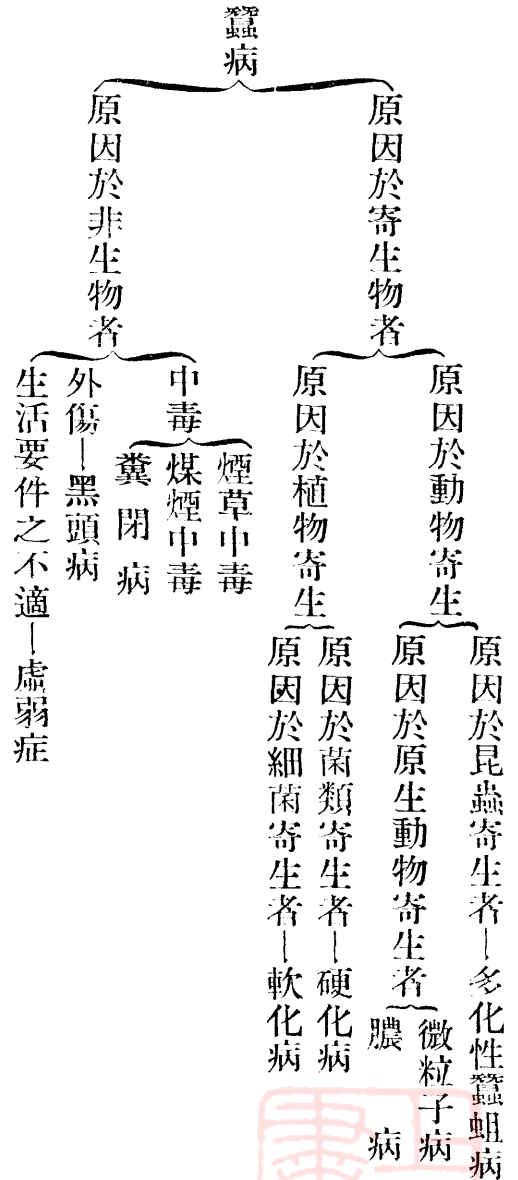 蠶病
原因於寄生物者
原因於動物寄生
原因於昆蟲寄生者－多化性蠶蛆病
原因於原生動物寄生者
微粒子病
膿病
原因於植物寄生
原因於菌類寄生者－硬化病
原因於細菌寄生者－軟化病
原因於非生物者
中毒
煙草中毒
煤煙中毒
糞閉病
外傷－黑頭病
生活要件之不適－虛弱症